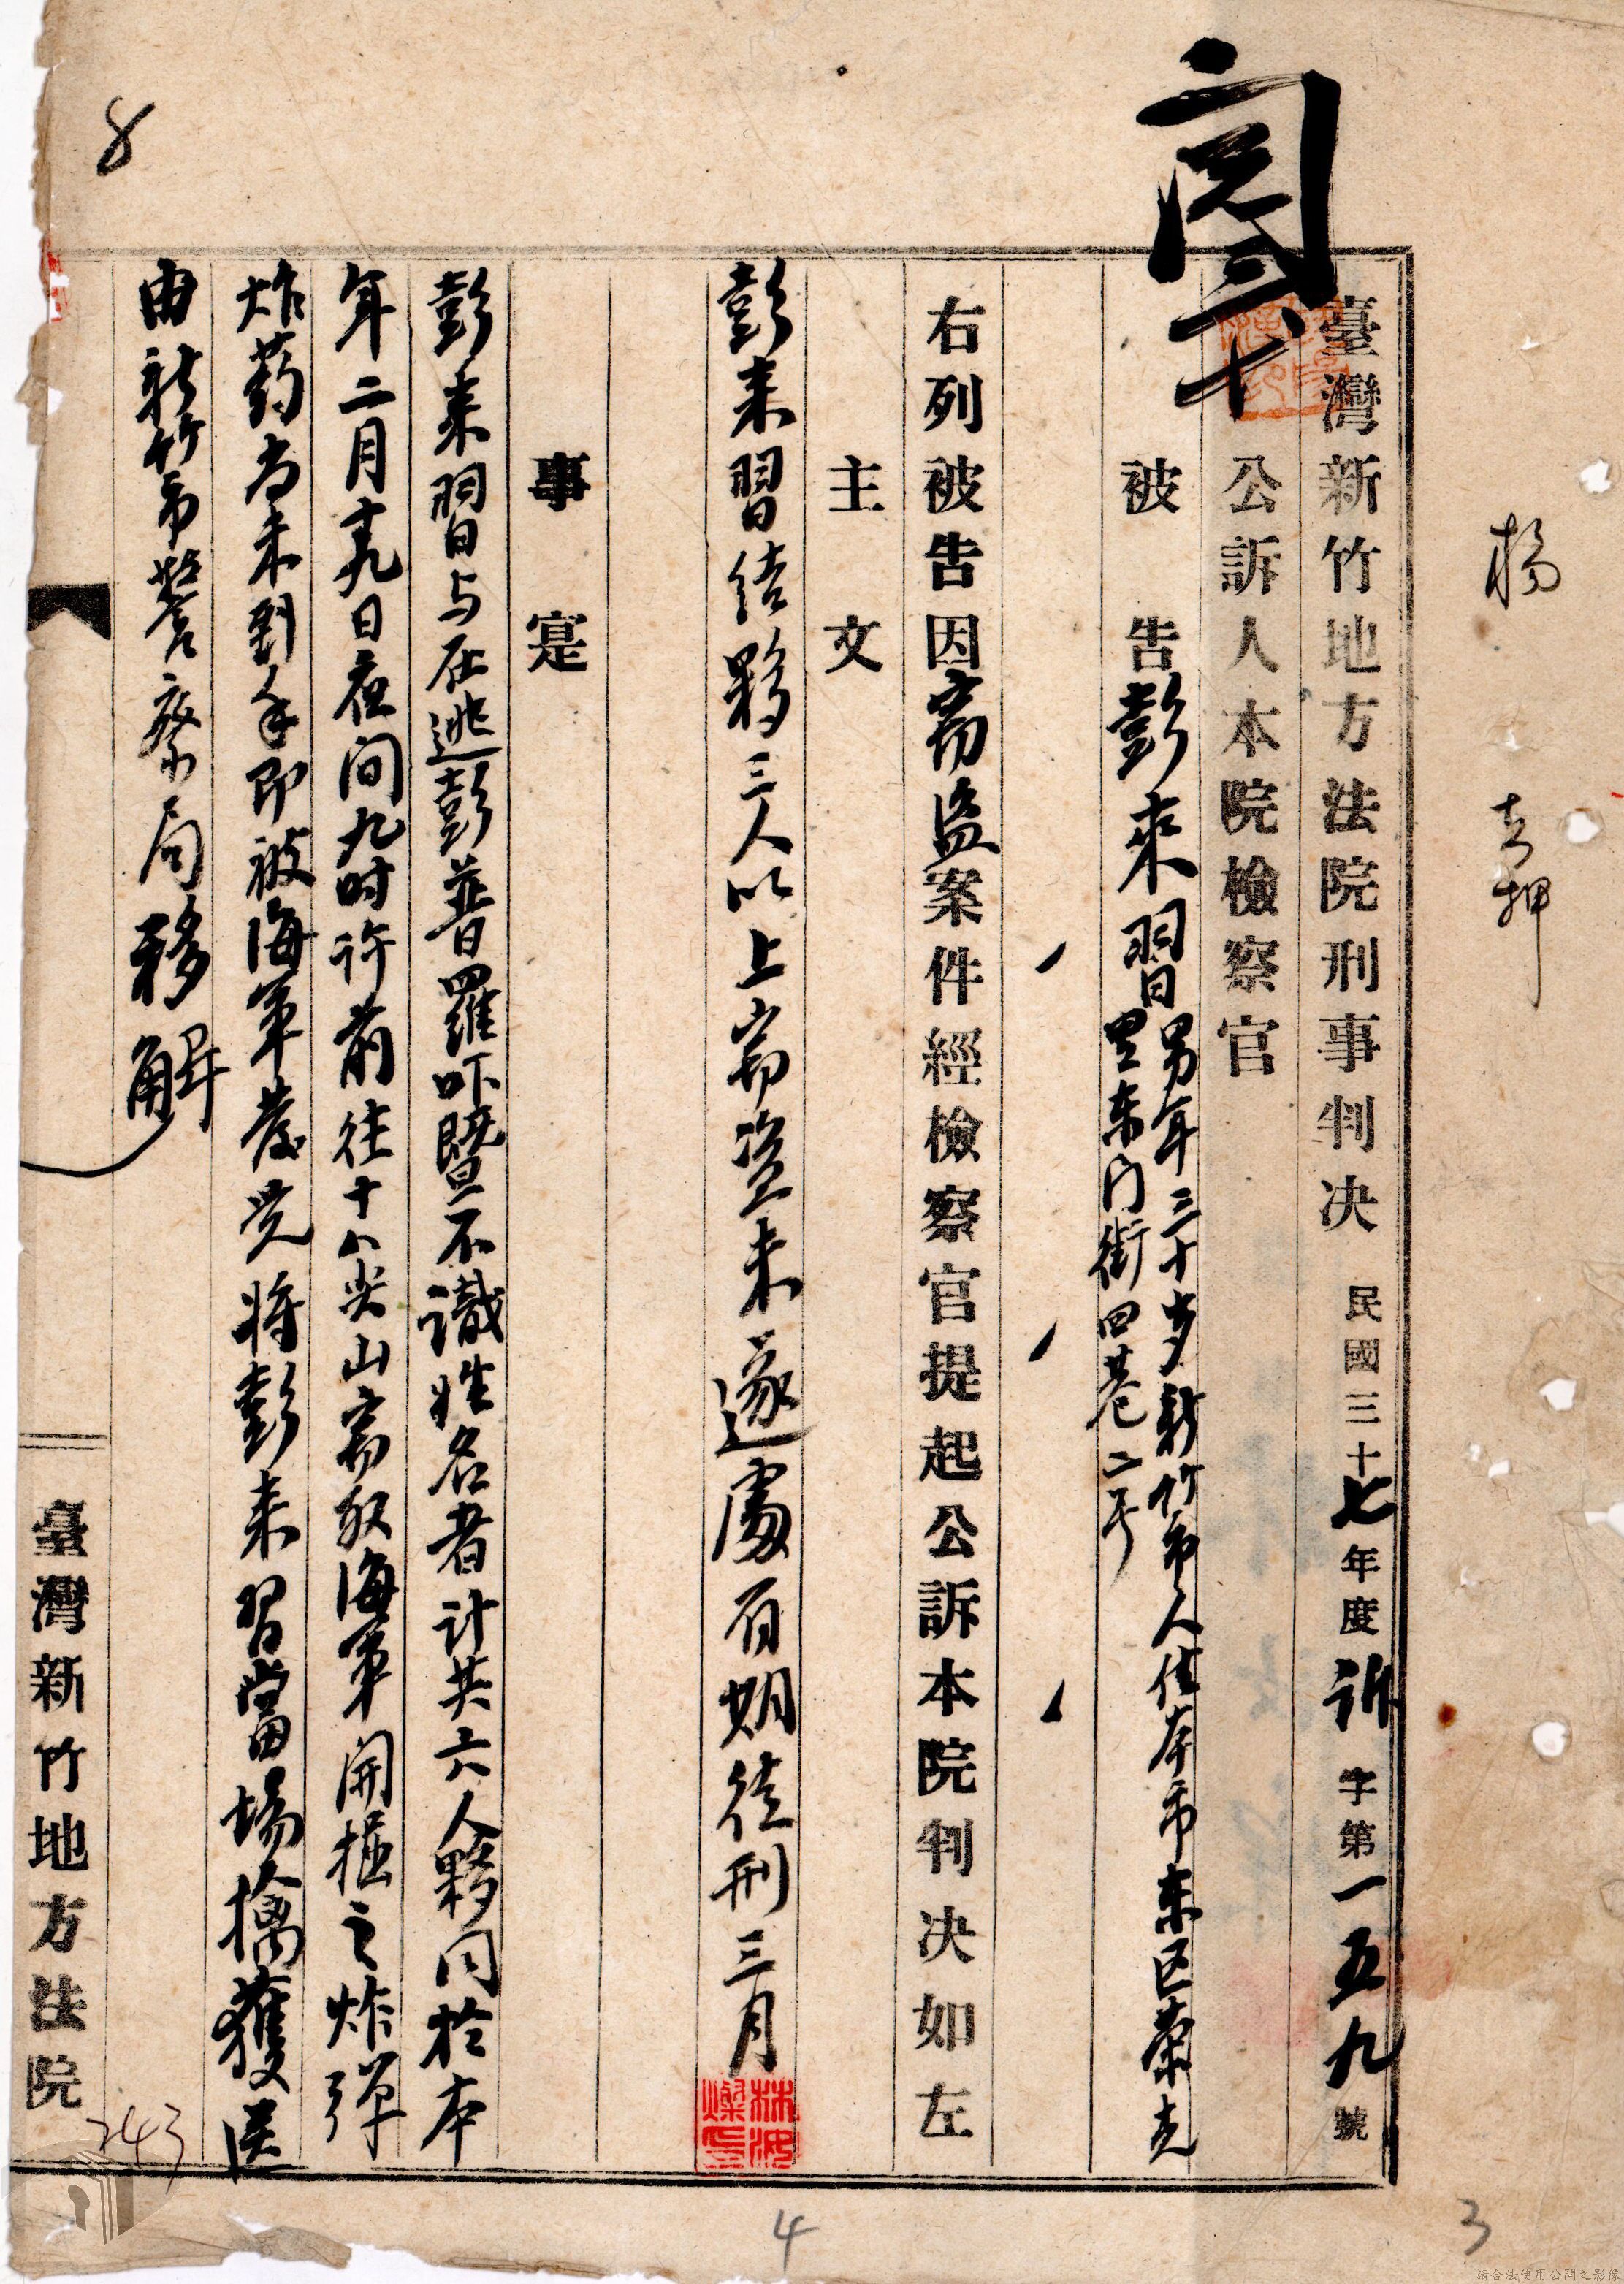 楊
在押
臺灣新竹地方法院刑事判決 民國三十七年度訴字第一五九號
公訴人本院檢察官
被告彭來習男年三十歲新竹市人住本市東区榮光
里东门街四巷二号
右列被告因窃盗案件經檢察官提起公訴本院判决如左
主文
彭来習结夥三人以上窃盗未遂處有期徒刑三月
事寔
彭来習与在逃彭普羅吓暨不識姓名者计共六人夥同於本
年二月十九日夜间九时许前往十八尖山窃取海軍開掘之炸弹
炸药尚未到手即被海軍发觉将彭来習當場擒獲送
由新竹市警察局移解
臺灣新竹地方法院
8
243
4
3
請合法使用公開之影像